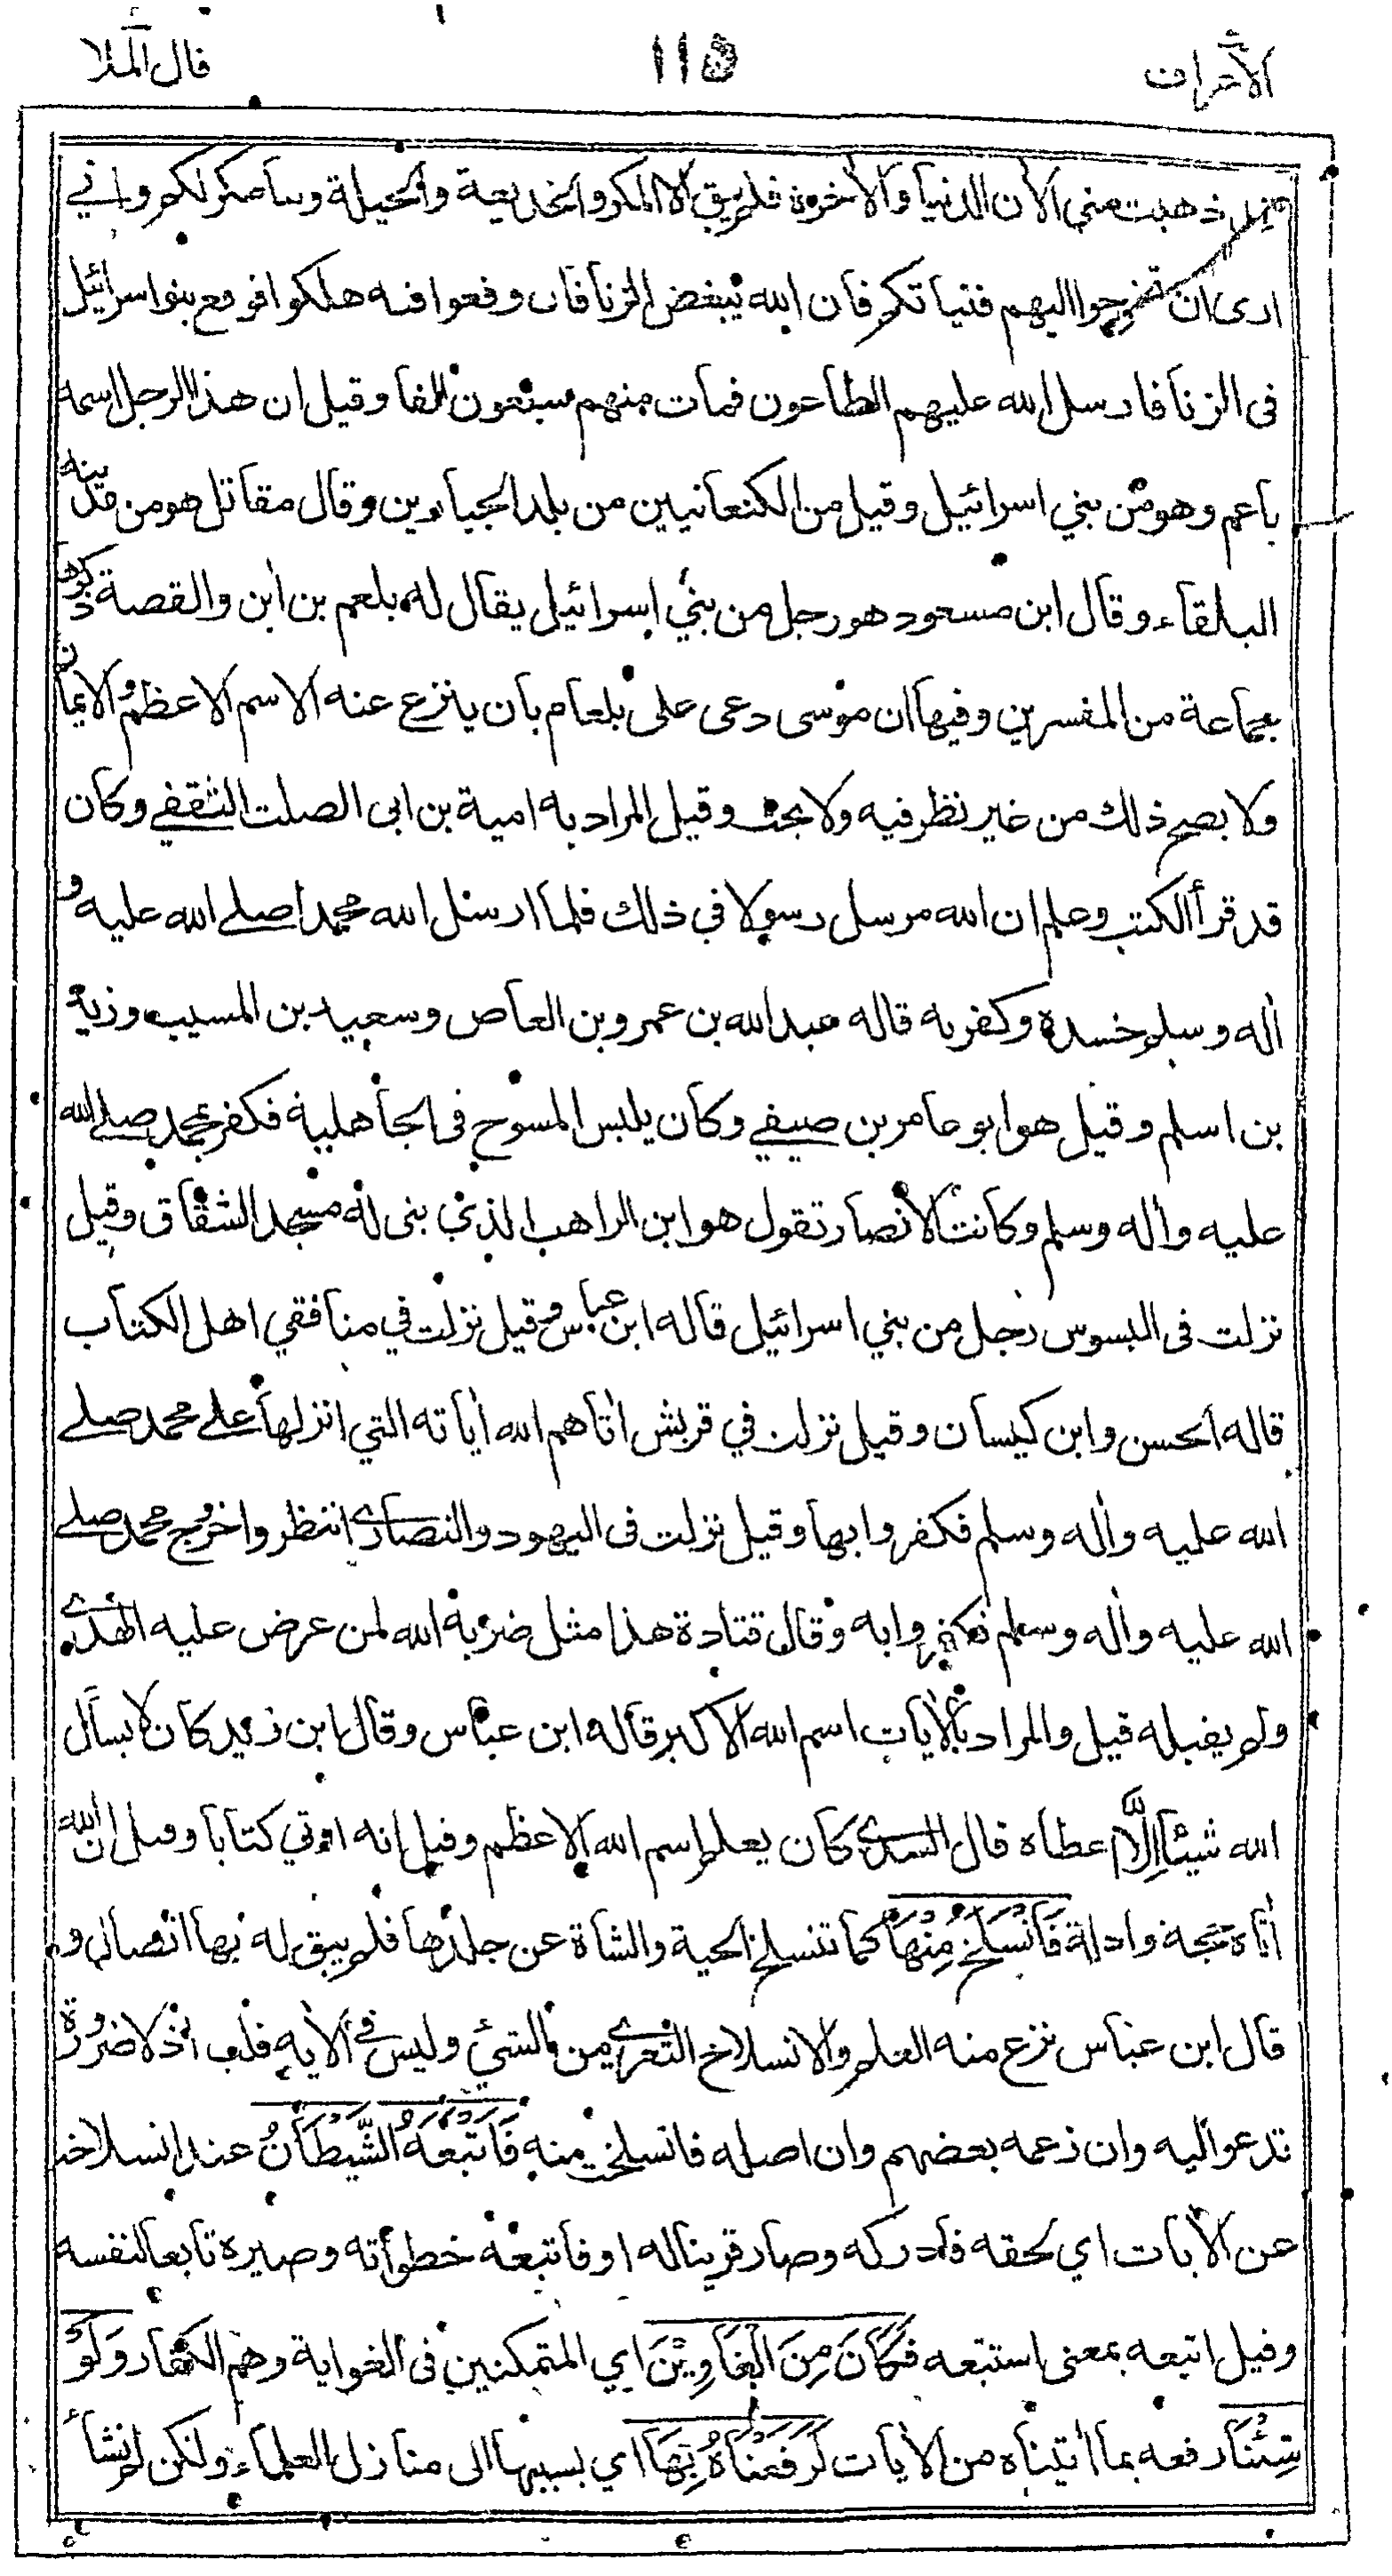 الأعراف
١١٥
قال الملا
قد ذهبت مني الأن الدنيا والأخرة فلم يبق الا المكر والخديعة والحيلة وسأمكر لكم واني
ارى ان تخرجوا اليهم فتياتكم فان الله يبغض الزنا فان وقعوا فيه هلكوا فوقع بنو اسرائيل
فى الزنا فارسل الله عليهم الطاعون فمات منهم سبعون الفا وقيل ان هذا الرجل اسمه
باعم وهو من بني اسرائيل وقيل من الكنعانيين من بلد الجبارين وقال مقاتل هو من مدينه
البلقاء وقال ابن مسعود هو رجل من بني إسرائيل يقال له بلعم بن أبن والقصة ذكرها
جماعة من المفسرين وفيها ان موسى دعى على بلعام بان ينزع عنه الاسم الاعظم والايمان
ولا يصح ذلك من غير نظر فيه ولا بحث وقيل المراد به امية بن ابى الصلت الثقفي وكان
قد قرأ الكتب وعلم ان الله مرسل رسولا في ذلك فلما ارسل الله محمدا صلے الله عليه و
أله وسلم حسده وكفر به قاله عبد الله بن عمرو بن العاص وسعيد بن المسيب وزيد
بن اسلم وقيل هو ابو عامر بن صيفي وكان يلبس المسوح فى الجاهلية فكفر بمحمد صلے الله
عليه وأله وسلم وكانت الأنصار تقول هو ابن الراهب الذي بنى له مسجد الشقاق وقيل
نزلت فى البسوس رجل من بني اسرائيل قاله ابن عباس وقيل نزلت في منافقي اهل الكتاب
قاله الحسن وابن كيسان وقيل نزلت في قريش أتاهم الله أياته التي انزلها على محمد صلے
الله عليه وأله وسلم فكفروا بها وقيل نزلت فى اليهود والنصارى انتظروا خروج محمد صلے
الله عليه وأله وسلم فكفروا به وقال قتادة هذا مثل ضربه الله لمن عرض عليه الهدى
ولم يقبله قيل والمراد بالأيات اسم الله الاكبر قاله ابن عباس وقال ابن زيد كان لا يسأل
الله شيئا إلّا اعطاه قال السدي كان يعلم اسم الله الاعظم وقيل إنه اوتي كتابا وقيل ان الله
أتاه حجة وادلة فَانْسَلَخَ مِنْهَا كما تنسلخ الحية والشاة عن جلدها فلم يبق له بها اتصال و
قال ابن عباس نزع منه العلم والانسلاخ التعري من الشئ وليس في الأية قلب اذ لا ضرورة
تدعو اليه وان زعمه بعضهم وان اصله فانسلخت منه فَأَتْبَعَهُ الشَّيْطَانُ عند انسلاخه
عن الأيات اي لحقه فأدركه وصار قرينا له او فاتبعه خطواته وصيره تابعا لنفسه
وقيل اتبعه بمعنى استتبعه فَكَانَ مِنَ الْغَاوِيْنَ اي المتمكنين فى الغواية وهم الكفار وَلَوْ
شِئْنَا رفعه بما أتيناه من الأيات لَرَفَعْنَاهُ بِهَا اي بسببها الى منازل العلماء ولكن لم نشأ